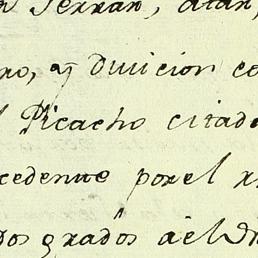 Terran, atan,
no, y Divicion co
Picacho citado
cedente por el r
dos grados del